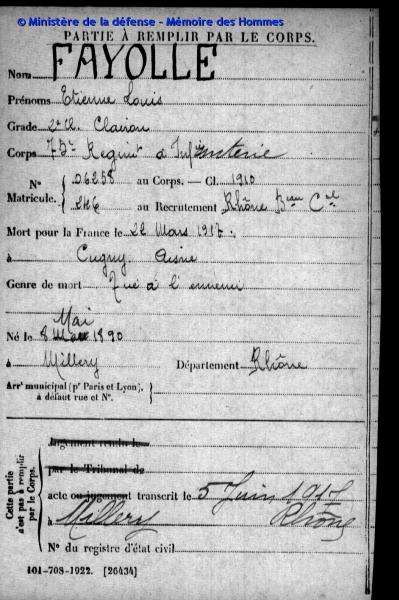 © Ministère de la défense - Mémoire des Hommes
PARTIE À REMPLIR PAR LE CORPS.
Nom FAYOLLE
Prénoms Etienne Louis
Grade 2e Cl. Clairon
Corps 75e Regiment d'Infanterie
N° 06258 au Corps. — Cl. 1910
Matricule. 246 au Recrutement Rhône Bau Cal
Mort pour la France le 22 Mars 1917
à Cugny. Aisne
Genre de mort Tué à l'ennemi
Mai
Né le 8 Mars 1890
à Millery Département Rhône
Arrt municipal (pr Paris et Lyon),
à défaut rue et N°.
Cette partie n'est pas à remplir par le Corps.
Jugement rendu le
par le Tribunal de
acte ou jugement transcrit le 5 Juin 1917
à Millery Rhône
N° du registre d'état civil
101-708-1922. [26434]